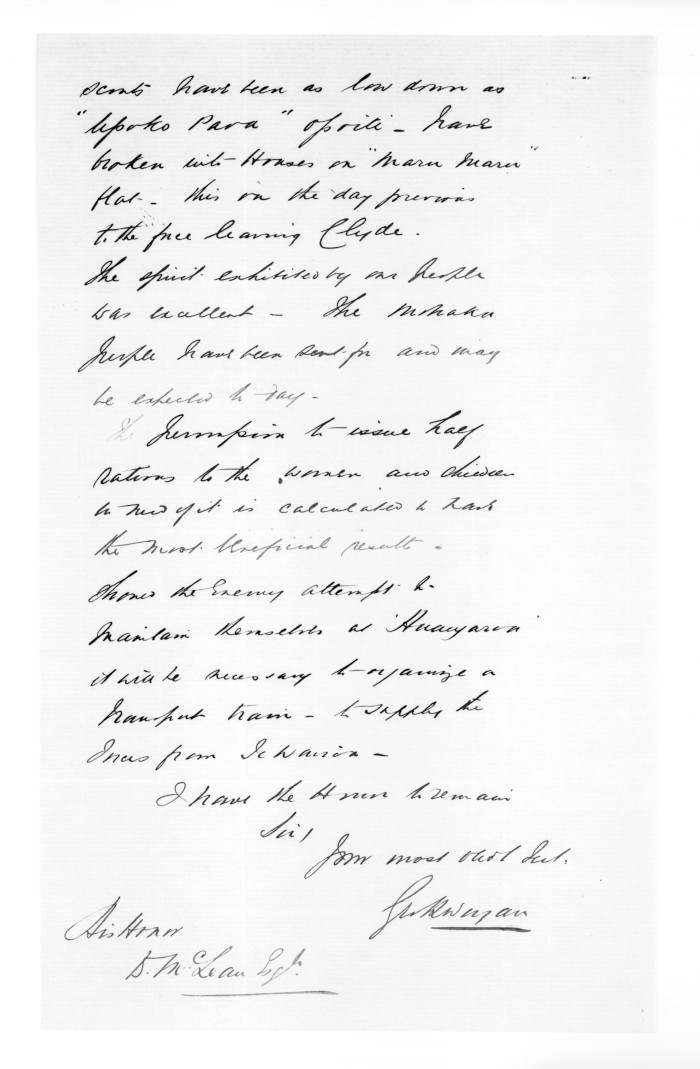 scouts have been as low down as
"Upoko Pava" opoiti - have
broken into Houses on "Maru Maru"
flat - this on the day previous
to the force leaving Clyde.
The spirit exhibited by our People
was excellent - The Mohaka
People have been sent for and may
be expected to day -
The Permission to issue half
rations to the women and children
in need of it is calculated to have
the most beneficial results -
Should the Enemy attempt to
Maintain themselves at
it will be necessary to organize a
Transport train - to supply the
Forces from Te Wairoa -
I have the Honor to remain
Sir,
Your most obdt Svt.
His Honor
D. McLean Esqr.